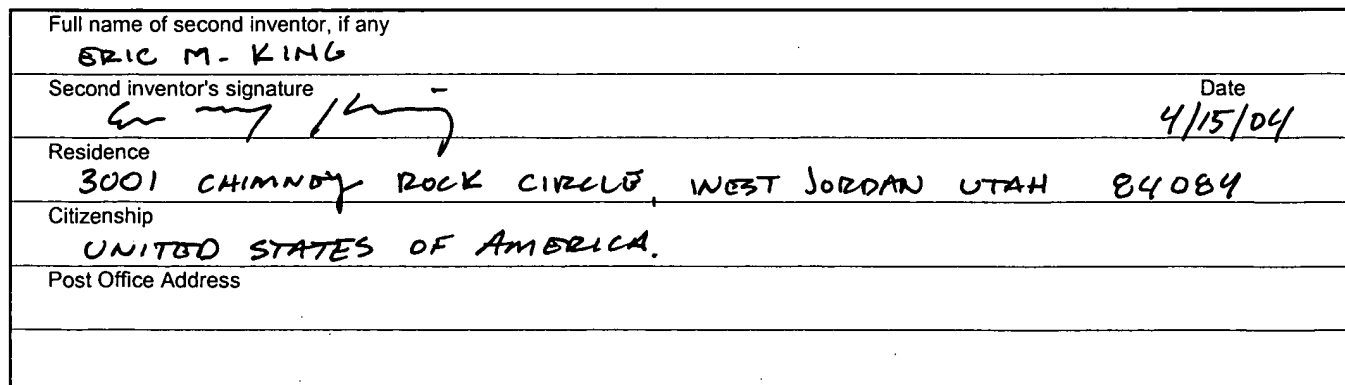 Full name of second inventor, if any
ERIC M. KING
Second inventor's signature Date
4/15/04
Residence
3001 CHIMNEY ROCK CIRCLE, WEST JORDAN UTAH 84084
Citizenship
UNITED STATES OF AMERICA.
Post Office Address